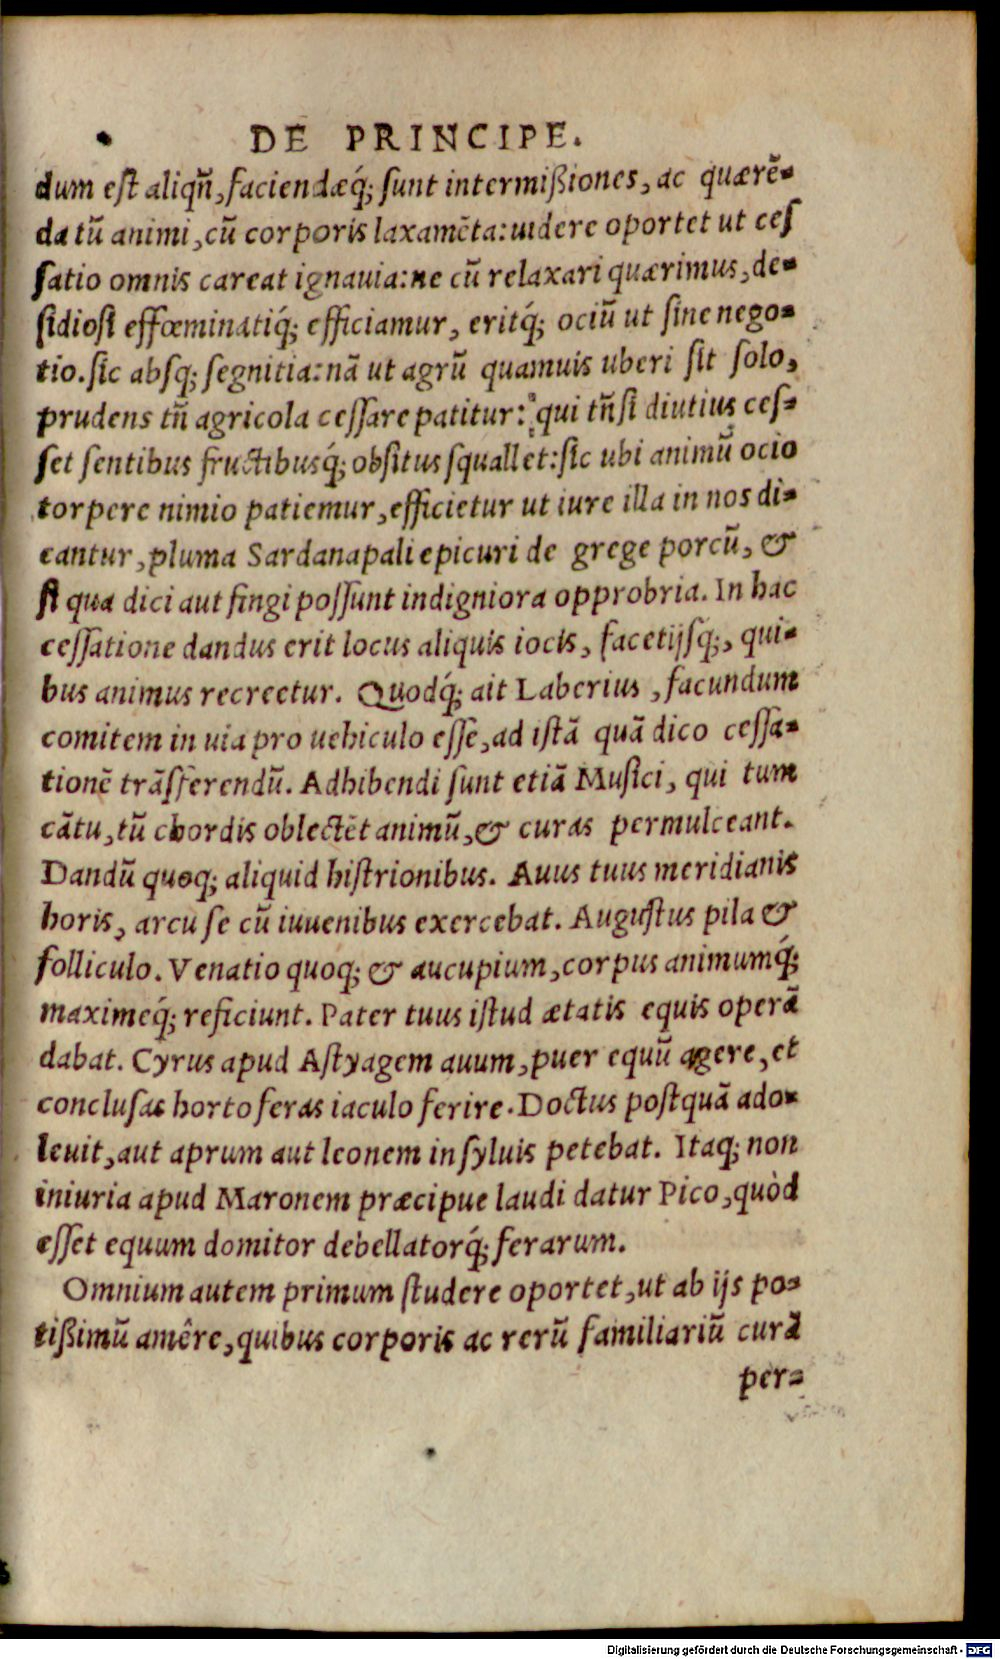 DE PRINCIPE.
dum est aliqñ, faciendæq́; sunt intermißiones, ac quærē-
da tū animi, cū corporis laxamēta: uidere oportet ut ces
satio omnis careat ignauia: ne cū relaxari quærimus, de-
sidiosi effœminatiq́; efficiamur, eritq́; ociū ut sine nego-
tio. sic absq; segnitia: nā ut agrū quamuis uberi sit solo,
prudens tñ agricola cessare patitur: qui tñ si diutius ces-
set sentibus fructibusq́; obsitus squallet: sic ubi animū ocio
torpere nimio patiemur, efficietur ut iure illa in nos di-
cantur, pluma Sardanapali epicuri de grege porcū, &
si qua dici aut fingi possunt indigniora opprobria. In hac
cessatione dandus erit locus aliquis iocis, facetijsq;, qui-
bus animus recreetur. Quodq́; ait Laberius, facundum
comitem in uia pro uehiculo esse, ad istā quā dico cessa-
tionē trāsferendū. Adhibendi sunt etiā Musici, qui tum
cātu, tū chordis oblectēt animū, & curas permulceant.
Dandū quoq; aliquid histrionibus. Auus tuus meridianis
horis, arcu se cū iuuenibus exercebat. Augustus pila &
folliculo. Venatio quoq; & aucupium, corpus animumq́;
maximeq́; reficiunt. Pater tuus istud ætatis equis operā
dabat. Cyrus apud Astyagem auum, puer equū agere, et
conclusas horto feras iaculo ferire. Doctus postquā ado-
leuit, aut aprum aut leonem in syluis petebat. Itaq; non
iniuria apud Maronem præcipue laudi datur Pico, quòd
esset equum domitor debellatorq́; ferarum.
Omnium autem primum studere oportet, ut ab ijs po-
tißimū amêre, quibus corporis ac rerū familiariū curā
per-
Digitalisierung gefördert durch die Deutsche Forschungsgemeinschaft - DFG